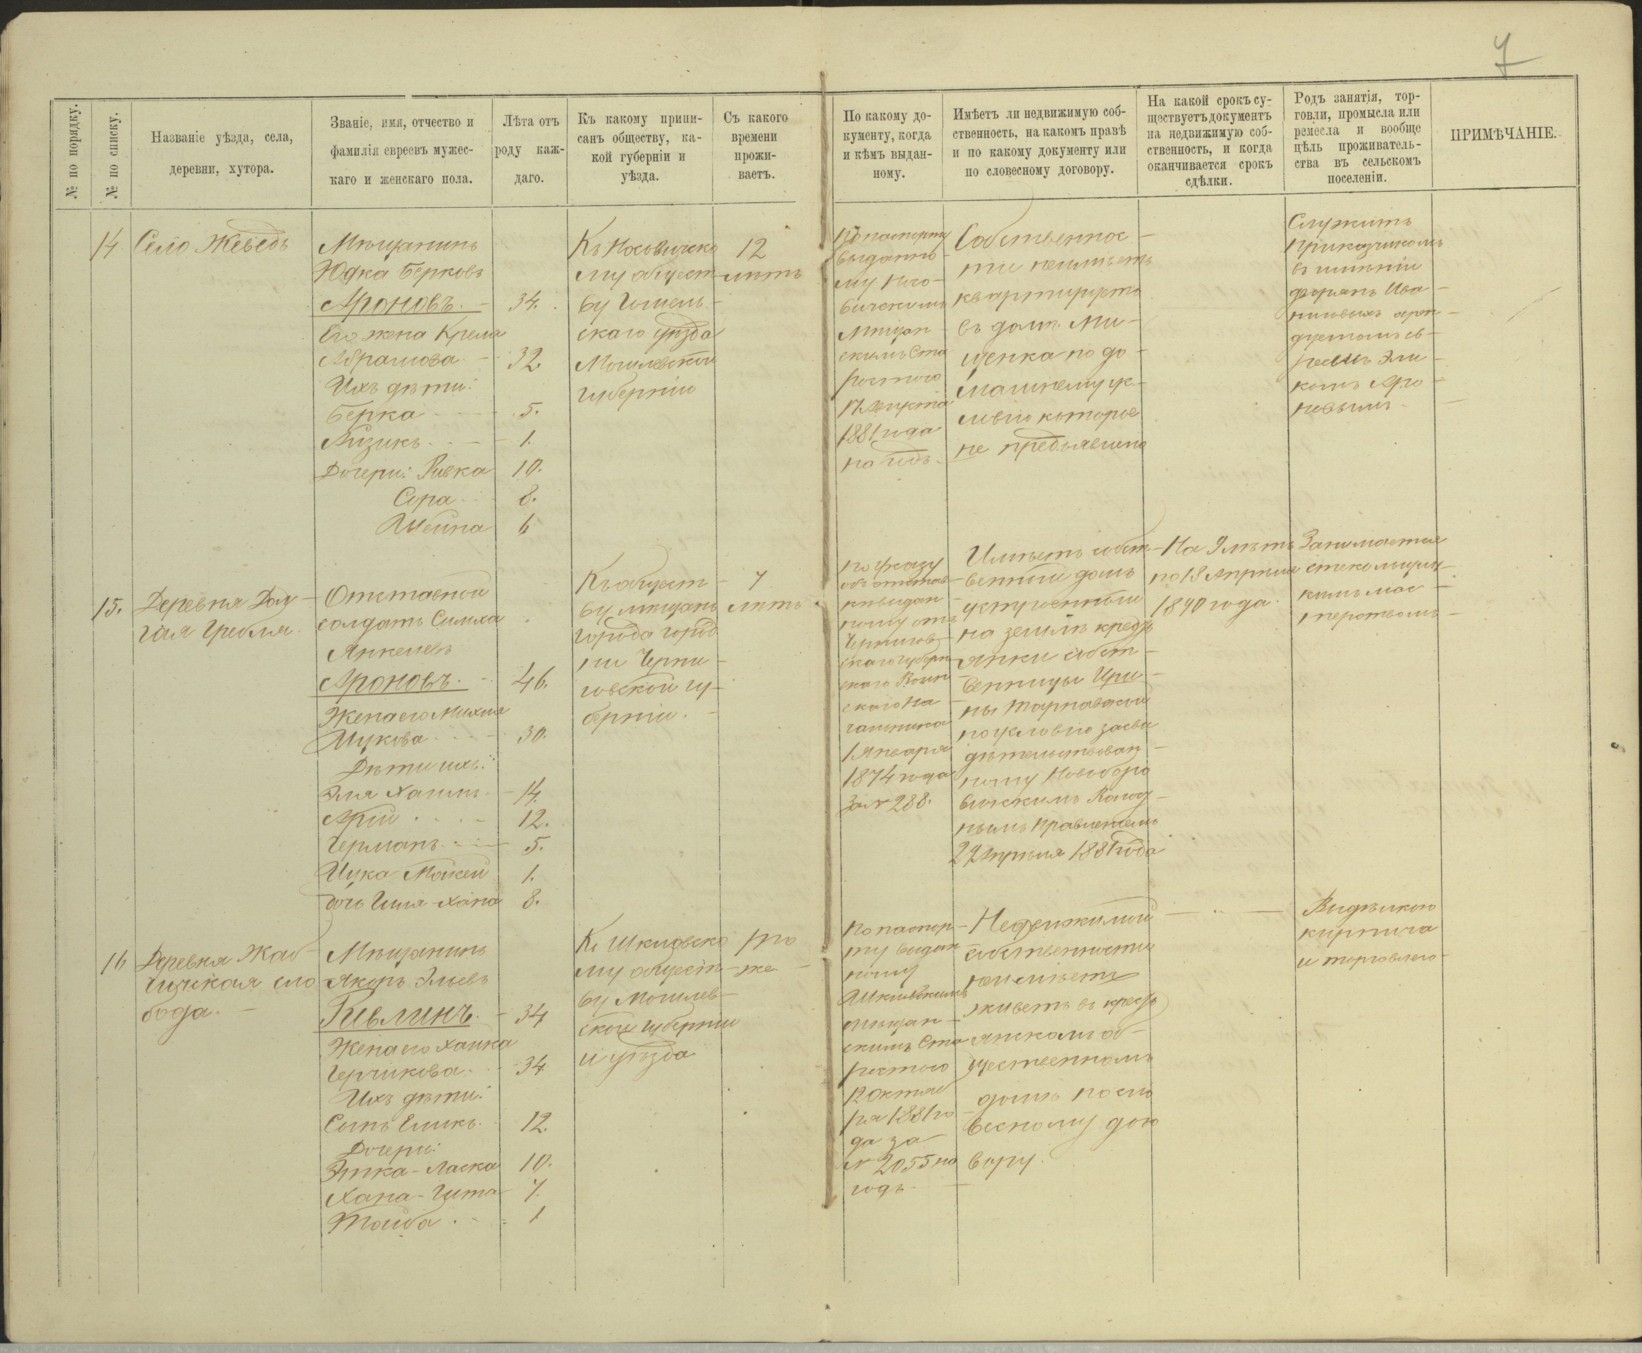 7
№ по порядку.
№ по списку.
Названіе уѣзда, села,
деревни, хутора.
Званіе, имя, отчество и
фамилія евреевъ мужес-
каго и женскаго пола.
Лѣта отъ
роду каж-
даго.
Къ какому припи-
санъ обществу, ка-
кой губерніи и
уѣзда.
Съ какого
времени
прожи-
ваетъ.
По какому до-
кументу, когда
и кѣмъ выдан-
ному.
Имѣетъ ли недвижимую соб-
ственность, на какомъ правѣ
и по какому документу или
по словесному договору.
На какой срокъ су-
ществуетъ документъ
на недвижимую соб-
ственность, и когда
оканчивается срокъ
сдѣлки.
Родъ занятія, тор-
говли, промысла или
ремесла и вообще
цѣль проживатель-
ства въ сельскомъ
поселеніи.
ПРИМѢЧАНІЕ.
14
Село Жеведь
Мѣщанинъ
Юдка Берковъ
Ароновъ. 34.
Его жена Крейна
Абрамова 32.
Ихъ дѣти:
Берка 5.
Айзикъ 1.
Дочери: Ривка 10.
Сора 8.
Шейна 6
Къ Носовичско
му общест-
ву Гомель-
скаго уѣзда
Могилевской
губерніи
12
лѣтъ
По паспорту
выданно-
му Носо-
вичскимъ
Мѣщан-
скимъ Ста
ростою
1881 года
на годъ.
Собственнос-
ти неимѣетъ
квартируетъ
въ домѣ Ми-
щенка по до-
машнему ус-
ловію которое
не предъявлено
Служитъ
прикащикомъ
въ имѣніи
дворянъ Ива-
ненковыхъ арен-
дуемомъ ев-
реемъ Эли-
комъ Аро-
новымъ.
15.
Деревня Дол-
гая Гребля.
Отставной
солдатъ Симха
Янкелевъ
Ароновъ. 46.
Жена его Михля
Мукова 30.
Дѣти ихъ:
Эля Хаимъ 14.
Арій 12.
Германъ 5.
Ицка Мойсей 1.
дочь Гися-Хана 8.
Къ общест-
ву мѣщанъ
города Город
ни Черни-
говской гу-
берніи.
7
лѣтъ
По указу
объ отстав-
кѣ выдан-
ному отъ
Чернигов-
скаго Губерн
скаго Воин
скаго На
чальника
1 Января
1874 года
За № 288.
Имѣетъ собст-
венный домъ
устроенный
на землѣ кресть
янки собст-
венницы Ири-
ны Тарнавской
по условію засви
дѣтельствован-
ному Новоборо
вичскимъ Волост-
нымъ Правленіемъ
22 Апрѣля 1881 года
На 9 лѣтъ
по 18 Апрѣля
1890 года.
Занимается
стекольщич-
кимъ мас-
терствомъ
16
Деревня Жаб-
чицкая сло
бода.
Мѣщанинъ
Якоръ Элиевъ
Ривлинъ. 34
Жена его Ханка
Герчикова 34
Ихъ дѣти:
Сынъ Еликъ 12.
Дочери:
Этка-Ласка 10.
Хана-Гита 7.
Тайба 1
Къ Шкловско
му общест-
ву Могилев-
ской губерніи
и уѣзда
то
же
По паспор-
ту выдан
ному
Шкловскимъ
мѣщан-
скимъ Ста
ростою
12 Октяб
ря 1881 го
да за
№ 2055 на
годъ.
Недвижимой
собственности
неимѣетъ
живетъ въ кресть
янскомъ об-
щественномъ
домѣ по сло
весному дого
вору.
Выдѣлкою
кирпича
и торговлею